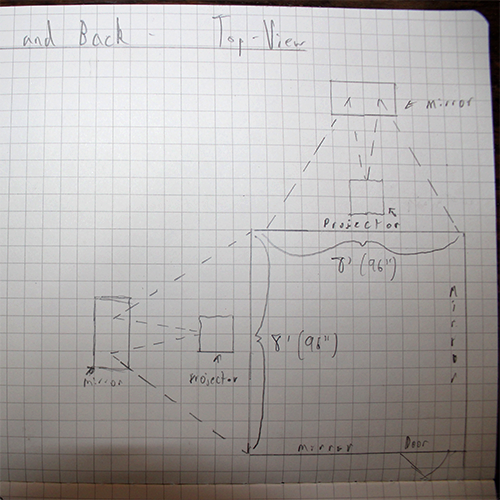 and Back - Top-View
Mirror
Projector
8' (96")
Mirror
8' (96")
Projector
Mirror
Mirror
Door